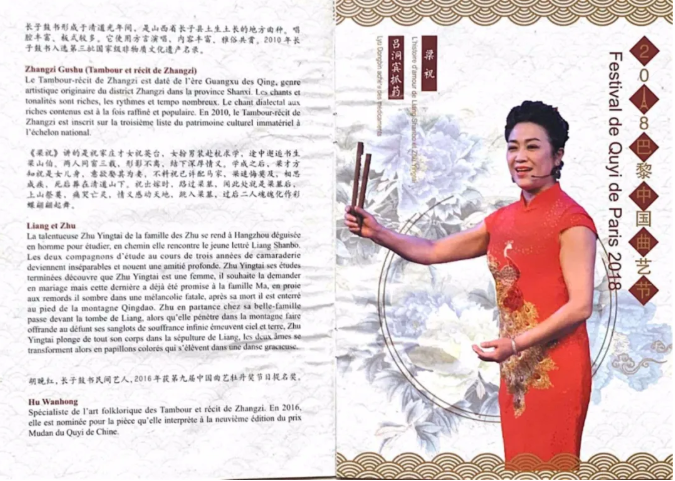 长子鼓书形成于清道光年间，是山西省长子县土生土长的地方曲种，唱
腔丰富、板式较多。它使用方言演唱、内容丰富、雅俗共赏。2010年长
子鼓书入选第三批国家级非物质文化遗产名录。
Zhangzi Gushu (Tambour et récit de Zhangzi)
Le Tambour-récit de Zhangzi est daté de l'ère Guangxu des Qing, genre
artistique originaire du district Zhangzi dans la province Shanxi. Les chants et
tonalités sont riches, les rythmes et tempo nombreux. Le chant dialectal aux
riches contenus est à la fois raffiné et populaire. En 2010, le Tambour-récit de
Zhangzi est inscrit sur la troisième liste du patrimoine culturel immatériel à
l'échelon national.
《梁祝》讲的是祝家庄才女祝英台，女扮男装赴杭求学，途中邂逅书生
梁山伯，两人同窗三载，形影不离，结下深厚情义。学成之后，梁才方
知祝是女儿身，意欲娶其为妻，不料祝已许配马家，梁追悔莫及，相思
成疾，死后葬在清道山下。祝出嫁时，路过梁墓，
上山祭奠，痛哭亡灵，情义感动天地，跳入梁墓，过后二人魂魄化作彩
蝶翩翩起舞。
Liang et Zhu
La talentueuse Zhu Yingtai de la famille des Zhu se rend à Hangzhou déguisée
en homme pour étudier, en chemin elle rencontre le jeune lettré Liang Shanbo.
Les deux compagnons d'étude au cours de trois années de camaraderie
deviennent inséparables et nouent une amitié profonde. Zhu Yingtai ses études
terminées découvre que Zhu Yingtai est une femme, il souhaite la demander
en mariage mais cette dernière a déjà été promise à la famille Ma, en proie
aux remords il sombre dans une mélancolie fatale, après sa mort il est enterré
au pied de la montagne Qingdao. Zhu en partance chez sa belle-famille
passe devant la tombe de Liang, alors qu'elle pénètre dans la montagne faire
offrande au défunt ses sanglots de souffrance infinie émeuvent ciel et terre, Zhu
Yingtai plonge de tout son corps dans la sépulture de Liang, les deux âmes se
transforment alors en papillons colorés qui s'élèvent dans une danse gracieuse.
胡晚红，长子鼓书民间艺人，2016年获第九届中国曲艺牡丹奖节目提名奖。
Hu Wanhong
Spécialiste de l'art folklorique des Tambour et récit de Zhangzi. En 2016,
elle est nominée pour la pièce qu'elle interprète à la neuvième édition du prix
Mudan du Quyi de Chine.
2018巴黎中国曲艺节
Festival de Quyi de Paris 2018
梁祝
L'histoire d'amour de Liang Shanbo et Zhu Yingtai
吕洞宾抓药
Lyu Dongbin achète des médicaments